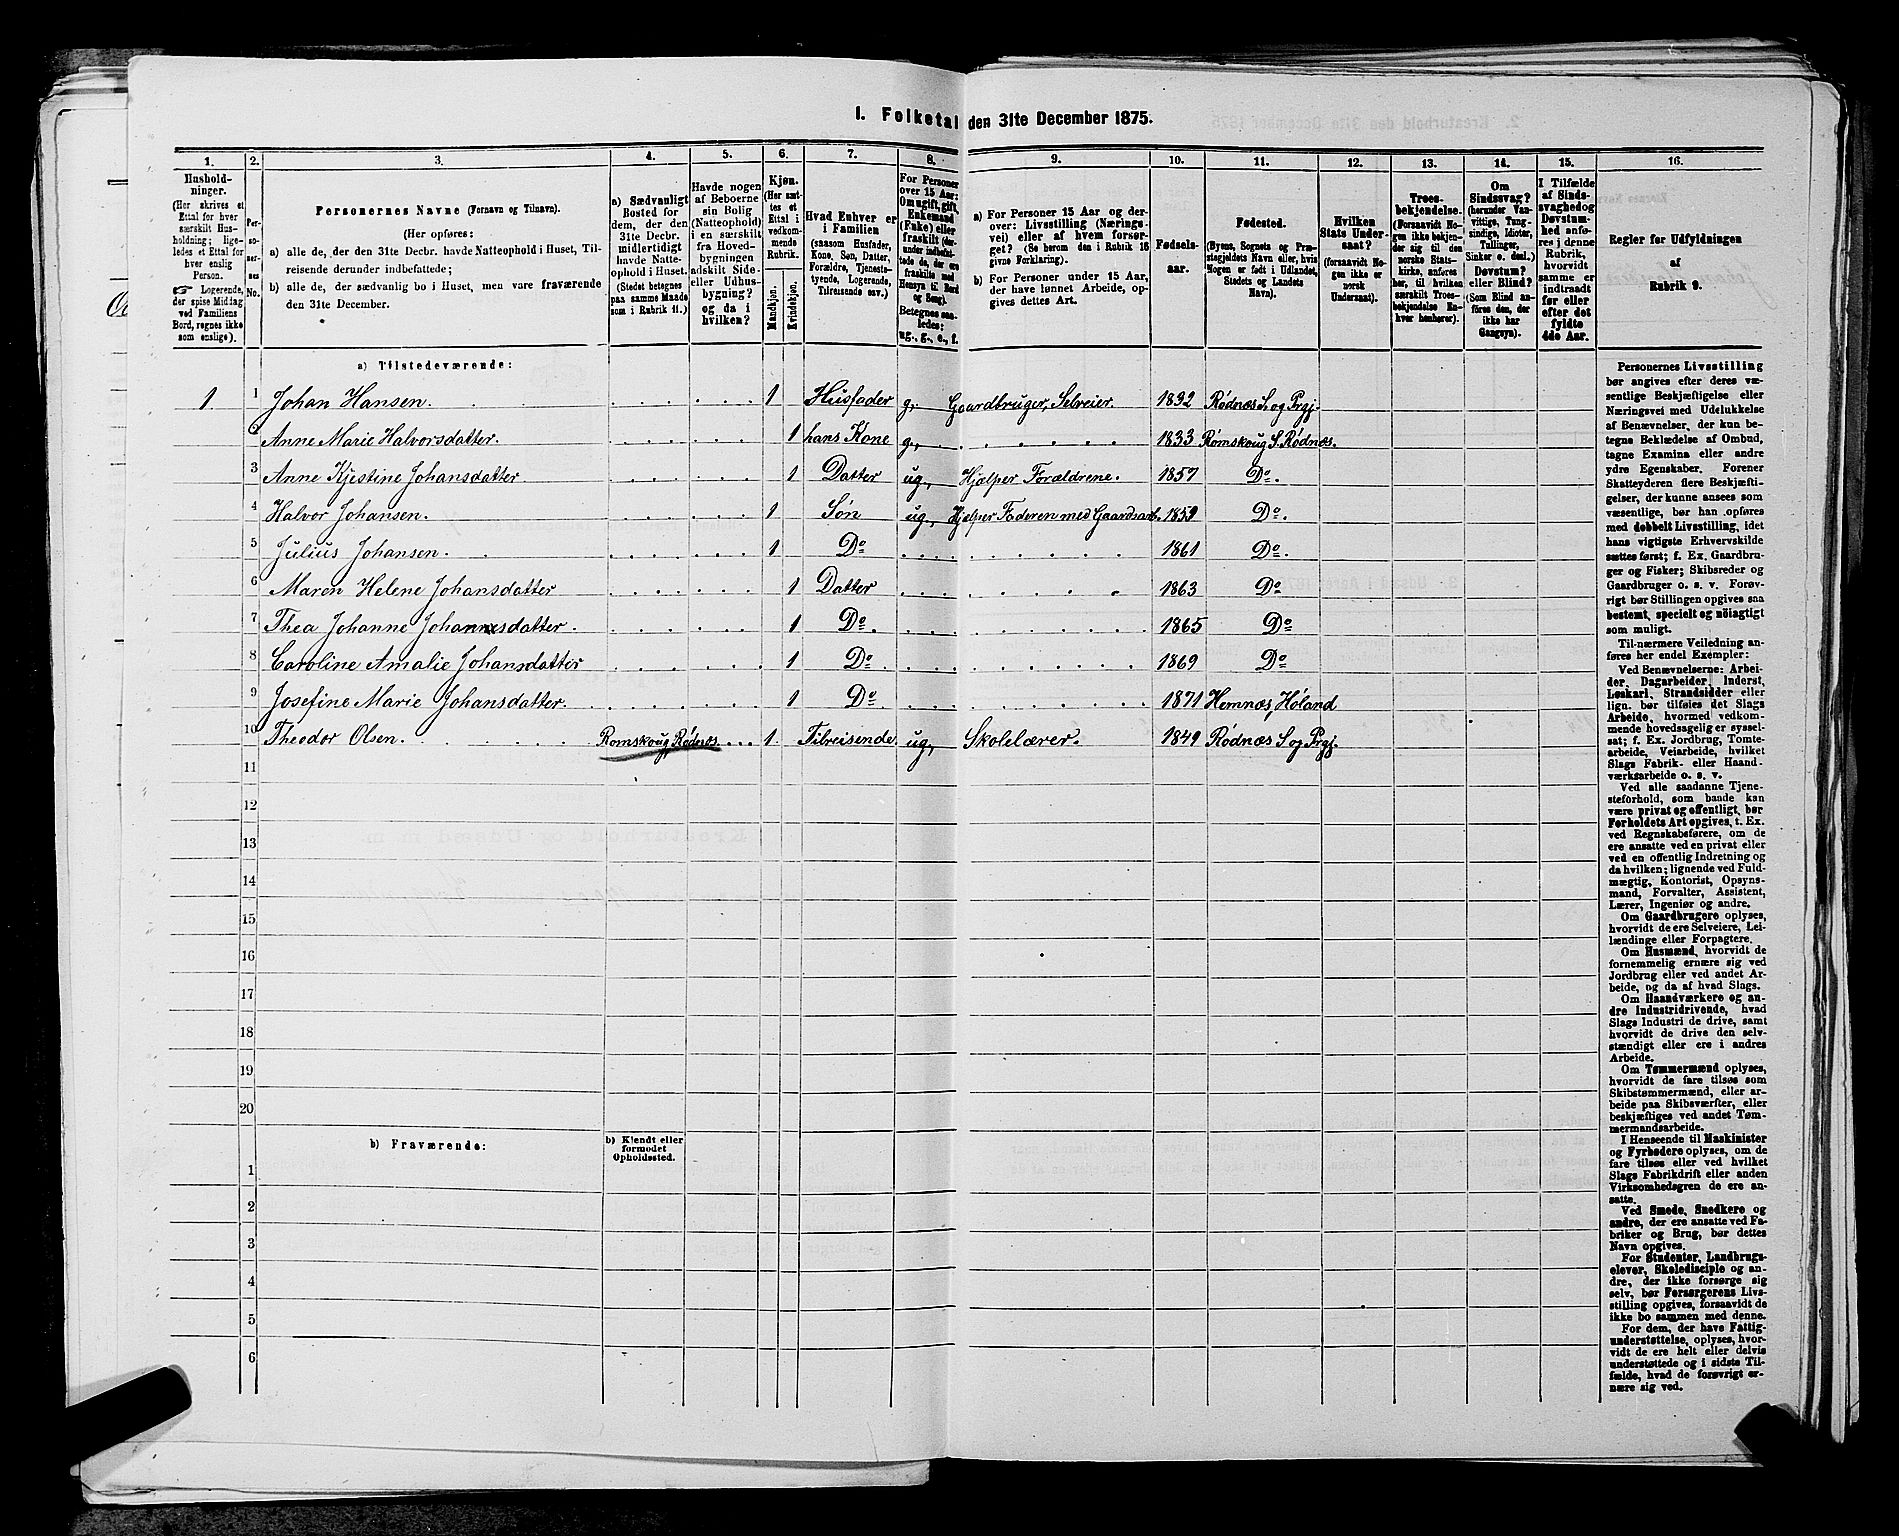 1. Folketal den 31te December 1875.
1.
Hushold-
ninger.
(Her skrives et
Ettal for hver
særskilt Hus-
holdning; lige-
ledes et Ettal for
hver enslig
Person.
☞ Logerende,
der spise Middag
ved Familiens
Bord, regnes ikke
som enslige).
2.
Per-
so-
ner-
nes
No.
3.
Personernes Navne (Fornavn og Tilnavn).
(Her opføres:
a) alle de, der den 31te Decbr. havde Natteophold i Huset, Til-
reisende derunder indbefattede;
b) alle de, der sædvanlig bo i Huset, men vare fraværende
den 31te December.
4.
a) Sædvanligt
Bosted for
dem, der den
31te Decbr.
midlertidigt
havde Natte-
ophold i Huset.
(Stedet betegnes
paa samme Maade
som i Rubrik 11.)
5.
Havde nogen
af Beboerne
sin Bolig
(Natteophold)
i en særskilt
fra Hoved-
bygningen
adskilt Side-
eller Udhus-
bygning?
og da i
hvilken?
6.
Kjøn.
(Her sæt-
tes et
Ettal i
vedkom-
mende
Rubrik.
Mandkjøn.
Kvindekjøn.
7.
Hvad Enhver er
i Familien
(saasom Husfader,
Kone, Søn, Datter,
Forældre, Tjeneste-
tyende, Logerende,
Tilreisende osv.)
8.
For Personer
over 15 Aar:
Om ugift, gift,
Enkemand
(Enke) eller
fraskilt (der-
under indbefat-
tede de, der ere
fraskilte med
Hensyn til Bord
og Seng).
Betegnes saa-
ledes:
ug., g., e., f.
9.
a) For Personer 15 Aar og der-
over: Livsstilling (Nærings-
vei) eller af hvem forsør-
get? (Se herom den i Rubrik 16
givne Forklaring).
b) For Personer under 15 Aar,
der have lønnet Arbeide, op-
gives dettes Art.
10.
Fødsels-
aar.
11.
Fødested.
(Byens, Sognets og Præ-
stegjeldets Navn eller, hvis
Nogen er født i Udlandet,
Stedets og Landets
Navn).
12.
Hvilken
Stats Under-
saat?
(forsaavidt No-
gen ikke er
norsk
Undersaat).
13.
Troes-
bekjendelse.
(Forsaavidt No-
gen ikke bekjen-
der sig til den
norske Stats-
kirke, anføres
her, til hvilken
særskilt Troes-
bekjendelse En-
hver henhører).
14.
Om
Sindssvag?
(herunder Van-
vittige, Tung-
sindige, Idioter,
Tullinger,
Sinker o. desl.)
Døvstum?
eller Blind?
(Som Blind an-
føres den, der
ikke har
Gangsyn).
15.
I Tilfælde
af Sinds-
svaghed og
Døvstum-
hed anfø-
res i denne
Rubrik,
hvorvidt
samme er
indtraadt
før eller
efter det
fyldte
4de Aar.
16.
Regler for Udfyldningen
af
Rubrik 9.
a) Tilstedeværende:
1 1 Johan Hansen. 1 Husfader g., Gaardbruger, Selveier. 1832 Rødnæs S. og Prgj.
2 Anne Marie Halvorsdatter. 1 hans Kone g., 1833 Rømskoug S. Rødnæs.
3 Anne Kjestine Johansdatter 1 Datter ug., Hjælper Forældrene. 1857 Do.
4 Halvor Johansen. 1 Søn ug., Hjælper Faderen med Gaardsarb. 1859 Do.
5 Julius Johansen. 1 Do 1861 Do.
6 Maren Helene Johansdatter 1 Datter 1863 Do
7 Thea Johanne Johannesdatter. 1 Do. 1865 Do
8 Caroline Amalie Johansdatter 1 Do 1869 Do
9 Josefine Marie Johansdatter. 1 Do 1871 Hemnæs, Høland
10 Theodor Olsen. Romskoug, Rødnæs. 1 Tilreisende ug., Skolelærer. 1849 Rødnæs S. og Prgj.
11
12
13
14
15
16
17
18
19
20
b) Fraværende:
b) Kjendt eller
formodet
Opholdssted.
1
2
3
4
5
6
Personernes Livsstilling
bør angives efter deres væ-
sentlige Beskjæftigelse eller
Næringsvei med Udelukkelse
af Benævnelser, der kun be-
tegne Beklædelse af Ombud,
tagne Examina eller andre
ydre Egenskaber. Forener
Skatteyderen flere Beskjæfti-
gelser, der kunne ansees som
væsentlige, bør han opføres
med dobbelt Livsstilling, idet
hans vigtigste Erhvervskilde
sættes først; f. Ex. Gaardbru-
ger og Fisker; Skibsreder og
Gaardbruger o. s. v. Forøv-
rigt bør Stillingen opgives saa
bestemt, specielt og nöiagtigt
som muligt.
Til nærmere Veiledning an-
føres her endel Exempler:
Ved Benævnelserne: Arbei-
der, Dagarbeider, Inderst,
Løskarl, Strandsidder eller
lign. bør tilføies det Slags
Arbeide, hvormed vedkom-
mende hovedsagelig er syssel-
sat; f. Ex. Jordbrug, Tomte-
arbeide, Veiarbeide, hvilket
Slags Fabrik- eller Haand-
værksarbeide o. s. v.
Ved alle saadanne Tjene-
steforhold, som baade kan
være privat og offentligt, bør
Forholdets Art opgives, t. Ex.
ved Regnskabsførere, om de
ere ansatte ved en privat eller
ved en offentlig Indretning og
da hvilken; lignende ved Fuld-
mægtig, Kontorist, Opsyns-
mand, Forvalter, Assistent,
Lærer, Ingeniør og andre.
Om Gaardbrugere oplyses,
hvorvidt de ere Selveiere, Lei-
lændinge eller Forpagtere.
Om Husmænd, hvorvidt de
fornemmelig ernære sig ved
Jordbrug eller ved andet Ar-
beide, og da af hvad Slags.
Om Haandværkere og an-
dre industridrivende, hvad
Slags Industri de drive, samt
hvorvidt de drive den selv-
stændigt eller ere i andres
Arbeide.
Om Tømmermænd oplyses,
hvorvidt de fare tilsøs som
Skibstømmermænd, eller ar-
beide paa Skibsværfter, eller
beskjæftiges ved andet Tøm-
mermandsarbeide.
I Henseende til Maskinister
og Fyrbødere oplyses, om de
fare tilsøs eller ved hvilket
Slags Fabrikdrift eller anden
Virksomhedsgren de ere an-
satte.
Ved Smede, Snedkere og
andre, der ere ansatte ved Fa-
briker og Brug, bør dettes
Navn opgives.
For Studenter, Landbrugs-
elever, Skoledisciple og an-
dre, der ikke forsørge sig
selv, bør Forsørgerens Livs-
stilling opgives, forsaavidt de
ikke bo sammen med denne.
For dem, der have Fattig-
understøttelse, oplyses, hvor-
vidt de ere helt eller delvis
understøttede og i sidste Til-
fælde, hvad de forøvrigt er-
nære sig ved.